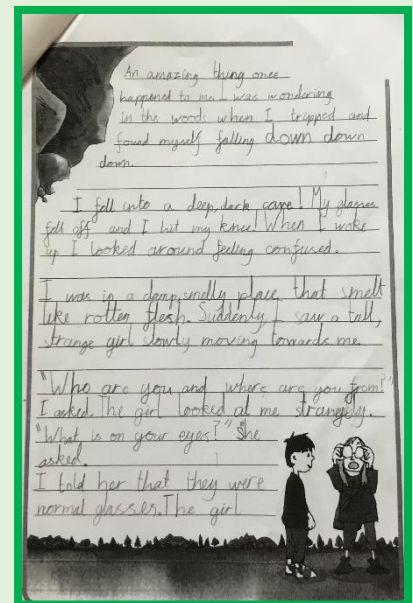 An amazing thing once
happened to me. I was wondering
in the woods when I tripped and
found myself falling down down
down.
I fell into a deep, dark cave! My glasses
fell off and I hit my knee! When I woke
up I looked around feeling confused.
I was in a damp, smelly place that smelt
like rotten flesh. Suddenly I saw a tall,
strange girl slowly moving towards me.
"Who are you and where are you from?"
I asked. The girl looked at me strangely.
"What is on your eyes?" She
asked.
I told her that they were
normal glasses. The girl